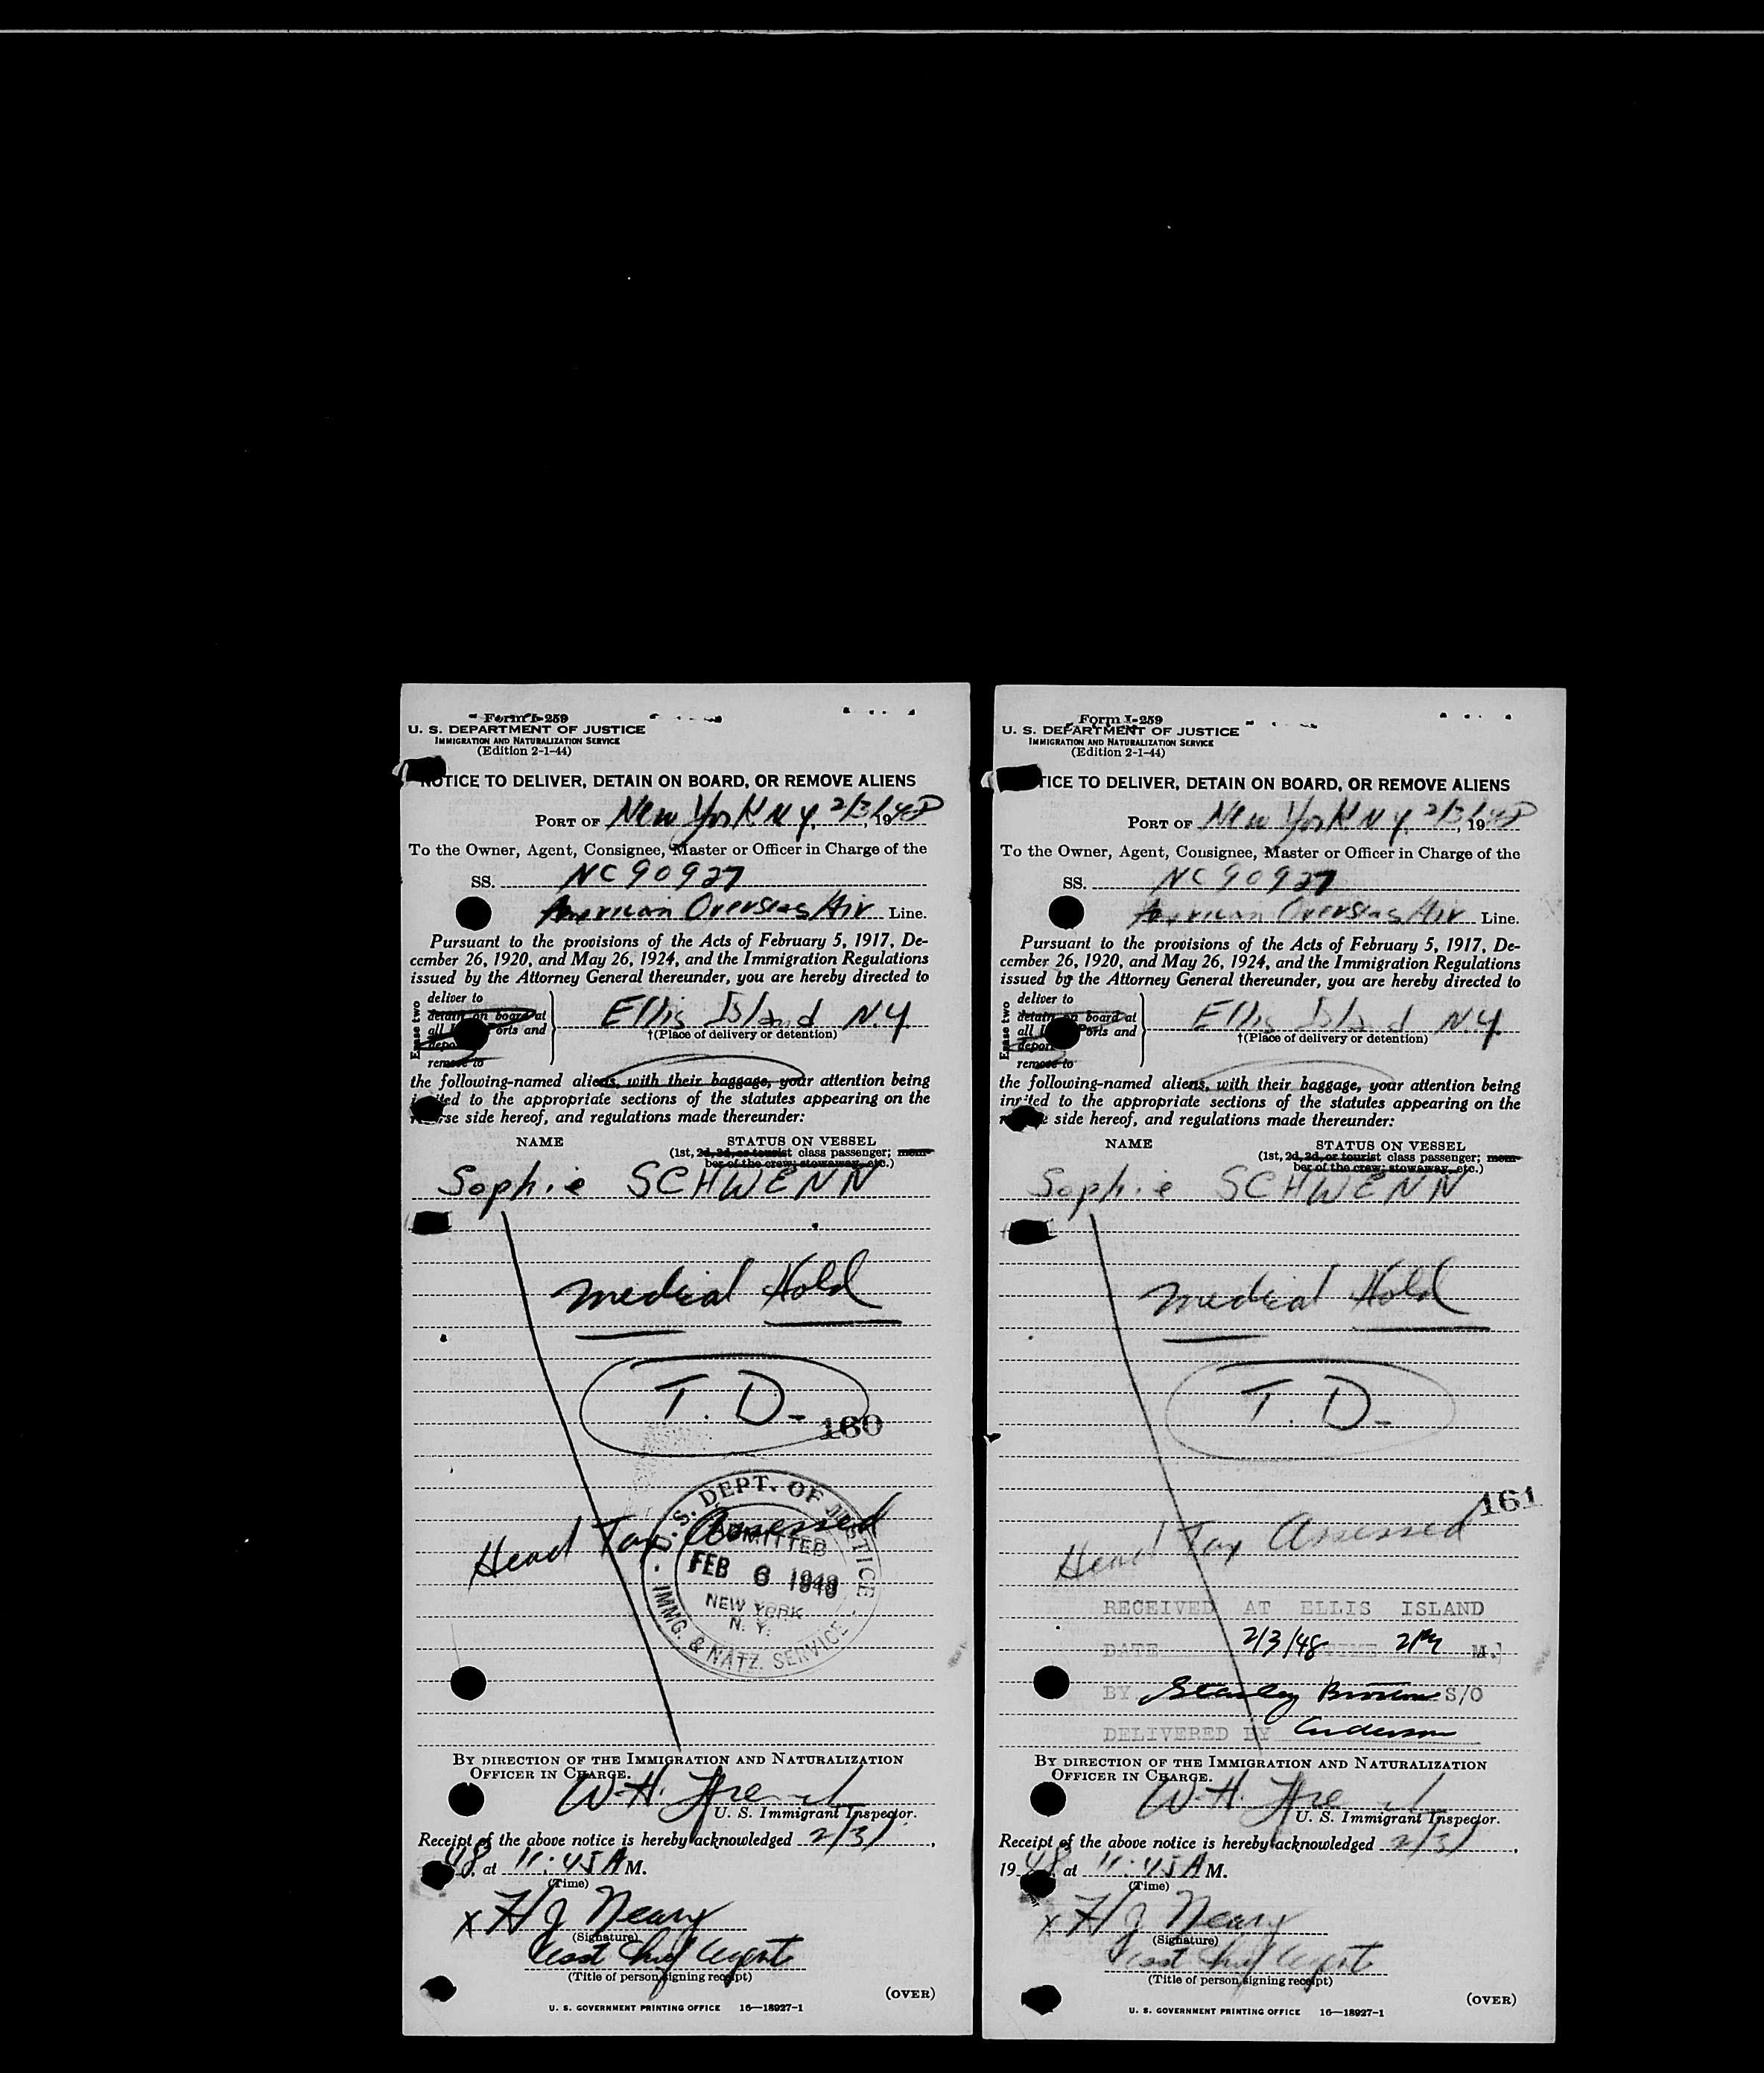 Form I-259
U. S. DEPARTMENT OF JUSTICE
IMMIGRATION AND NATURALIZATION SERVICE
(Edition 2-1-44)
NOTICE TO DELIVER, DETAIN ON BOARD, OR REMOVE ALIENS
PORT OF New York N Y, 2/3/, 1948
To the Owner, Agent, Consignee, Master or Officer in Charge of the
SS. NC 90927
American Overseas Air Line.
Pursuant to the provisions of the Acts of February 5, 1917, De-
cember 26, 1920, and May 26, 1924, and the Immigration Regulations
issued by the Attorney General thereunder, you are hereby directed to
Erase two
deliver to
detain on board at
all ports and
deport
remove to
Ellis Island N.Y.
†(Place of delivery or detention)
the following-named aliens, with their baggage, your attention being
invited to the appropriate sections of the statutes appearing on the
reverse side hereof, and regulations made thereunder:
NAME STATUS ON VESSEL
(1st, 2d, 3d, or tourist class passenger; mem-
ber of the crew; stowaway, etc.)
Sophie SCHWENN
medical Hold
T. D-
160
Head Tax Assessed
U. S. DEPT. OF JUSTICE
ADMITTED
FEB 6 1948
NEW YORK
N. Y.
IMMG. & NATZ. SERVICE
BY DIRECTION OF THE IMMIGRATION AND NATURALIZATION
OFFICER IN CHARGE.
W. H.
U. S. Immigrant Inspector.
Receipt of the above notice is hereby acknowledged 2/3/,
48, at 11:45 A M.
(Time)
x H J Neary
(Signature)
Asst Chief Agent
(Title of person signing receipt)
(OVER)
U. S. GOVERNMENT PRINTING OFFICE 16—18927-1
Form I-259
U. S. DEPARTMENT OF JUSTICE
IMMIGRATION AND NATURALIZATION SERVICE
(Edition 2-1-44)
NOTICE TO DELIVER, DETAIN ON BOARD, OR REMOVE ALIENS
PORT OF New York N Y, 2/3/, 1948
To the Owner, Agent, Consignee, Master or Officer in Charge of the
SS. NC 90927
American Overseas Air Line.
Pursuant to the provisions of the Acts of February 5, 1917, De-
cember 26, 1920, and May 26, 1924, and the Immigration Regulations
issued by the Attorney General thereunder, you are hereby directed to
Erase two
deliver to
detain on board at
all ports and
deport
remove to
Ellis Island N.Y.
†(Place of delivery or detention)
the following-named aliens, with their baggage, your attention being
invited to the appropriate sections of the statutes appearing on the
reverse side hereof, and regulations made thereunder:
NAME STATUS ON VESSEL
(1st, 2d, 3d, or tourist class passenger; mem-
ber of the crew; stowaway, etc.)
Sophie SCHWENN
medical Hold
T. D-
161
Head Tax Assessed
RECEIVED AT ELLIS ISLAND
DATE 2/3/48 TIME 2PM M.
BY Stanley S/O
DELIVERED BY Anderson
BY DIRECTION OF THE IMMIGRATION AND NATURALIZATION
OFFICER IN CHARGE.
W. H.
U. S. Immigrant Inspector.
Receipt of the above notice is hereby acknowledged 2/3/,
1948, at 11:45 A M.
(Time)
x H J Neary
(Signature)
Asst Chief Agent
(Title of person signing receipt)
(OVER)
U. S. GOVERNMENT PRINTING OFFICE 16—18927-1